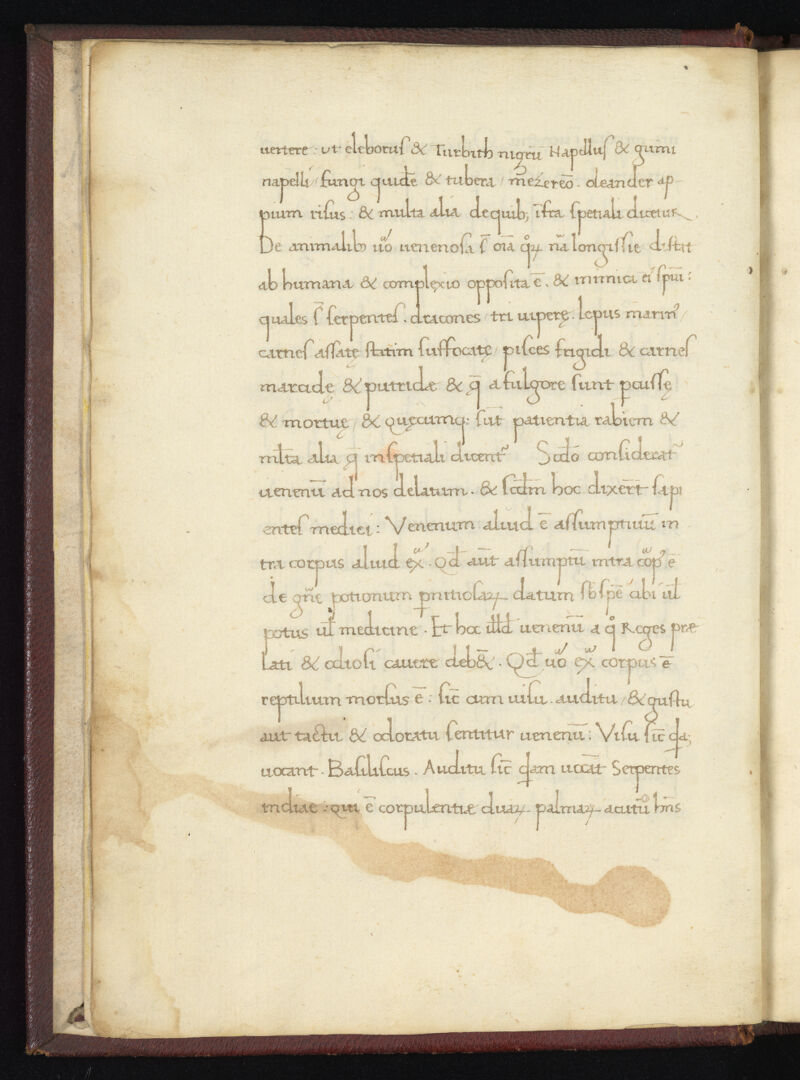 uertere : ut eleborus & Turbith nigrū Napellus & gumi
napelli / fungi quidē & tubera / mezereō . oleander ap
pium risus : & multa alia de quib; īfra spetiali dicetur
De animalib uō uenenosa s̄ oīa qꝝ nā longissīe distat
ab humana & complexio opposita ē . & inimica ei spūi :
quales s̄ serpentes . dracones / tri uiperę . lepus marin᾽ /
carnes assatę statim suffocatę / pisces frigidi & carnes
marcidę & putridæ & q̄ a fulgore sunt pcussę
& mortuę / & quęcumq; sūt patientia rabiem &
mlta alia q̄ in spetiali dicent᾽ Scdō considerat᾽
uenenū ad nos delatum . & scdm hoc dixert̄ sapi
entes medici : Venenum aliud ē assumptiuū in
tra corpus aliud ex᾽ . Qd̄ aūt assumptū intra cop᾽ ē
de gn̄e potionum pnitiosaꝝ datum sb spē cibi ul̄
potus ul̄ medicine . Et hoc illd̄ uenenū a q̊ Reges præ
lati & odiosi cauere deb&̄ . Qd̄ uō ex᾽ corpus ē
reptilium morsus ē : sic̄ cum uisu . auditu / & gustu
aut tactu & odoratu sentitur uenenū : Visu sic̄ qđa;
uocant . Basiliscus . Auditu sic̄ qđam uocāt Serpentes
indiae : qui ē corpulentiæ duaꝝ palmaꝝ acutū hn̄s